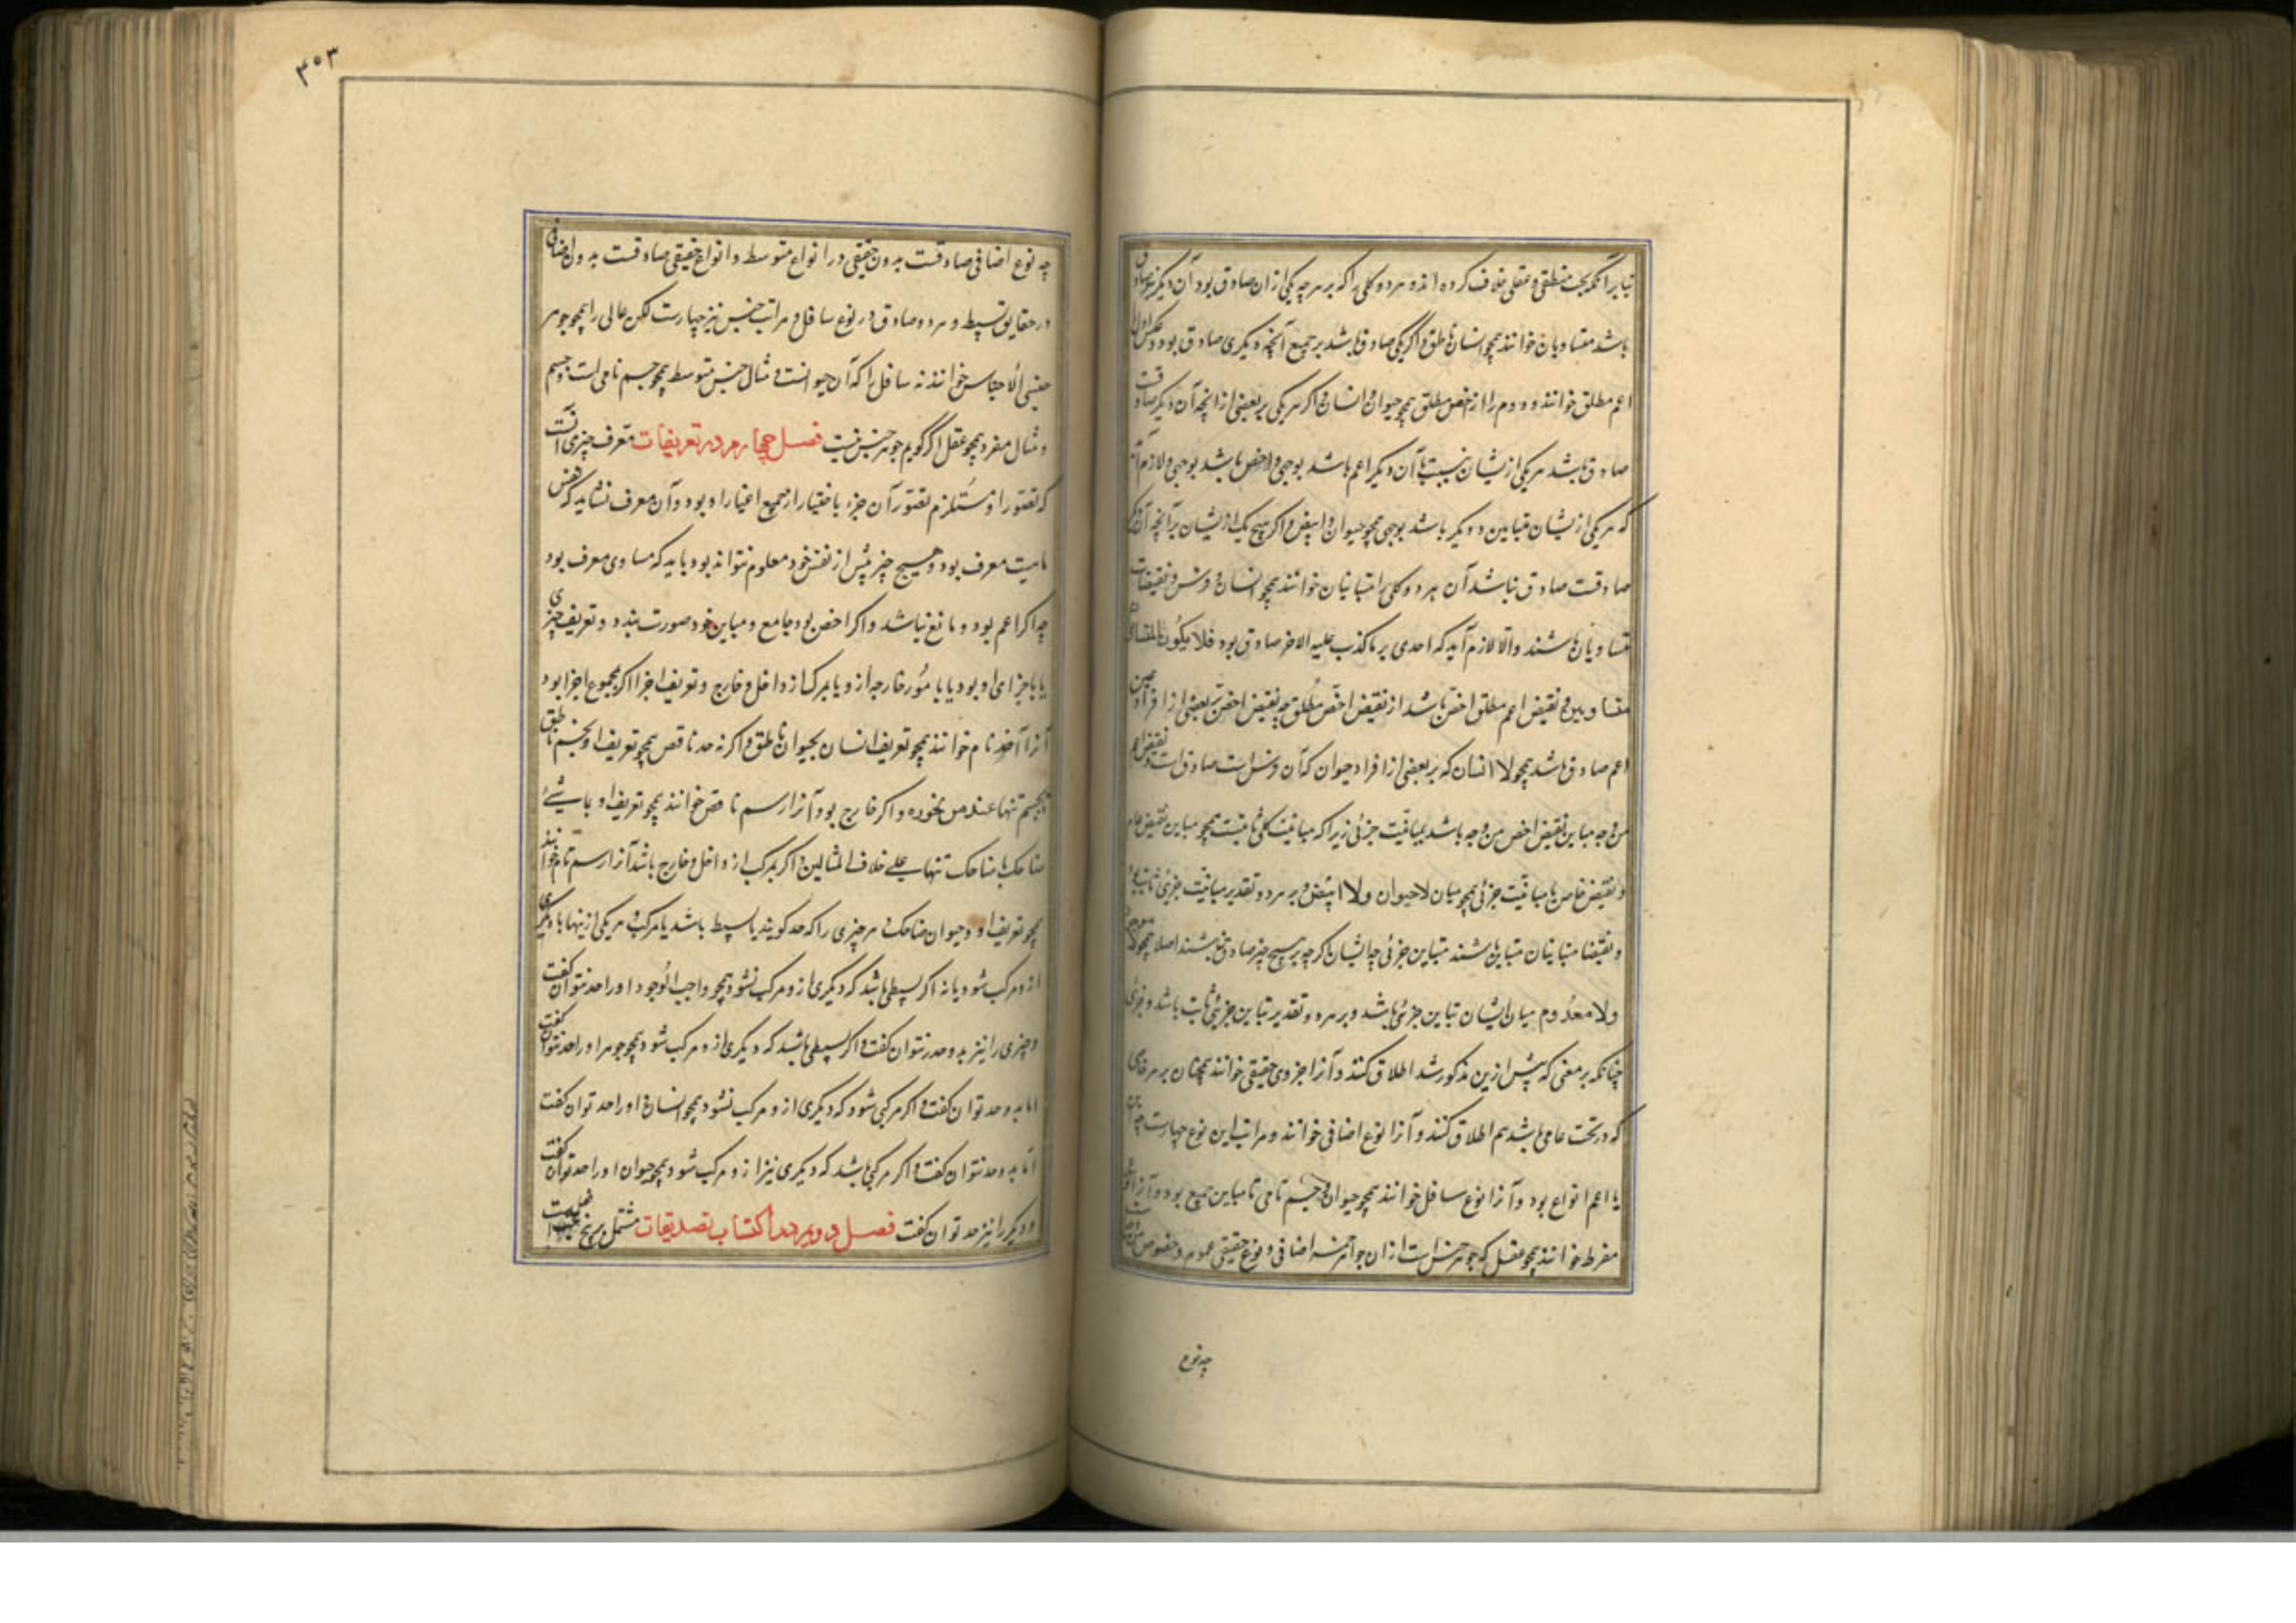 بنابر آنکه بحث منطقی و عقلی خلاف کرده‌اند و هر دو کلی را که بر هر چه یکی از ان صادق بود آن دیگر نیز صادق
باشد متساویان خوانند همچو انسان و ناطق و اگر یکی صادق باشد بر جمیع آنچه دیگری صادق بود
اعم مطلق خوانند و دوم را اخص مطلق همچو حیوان و انسان و اگر هر یکی بر بعضی از انچه آن دیگر صادقست
صادق باشد هر یکی ازیشان نسبت با آن دیگر اعم باشد بوجهی و اخص باشد بوجهی و لازم
که هر یکی ازیشان مباین دیگر باشد بوجهی همچو حیوان و ابیض و اگر هیچ یک ازیشان بر آنچه آن دیگر
صادقست صادق نباشد آن هر دو کلی را متباینان خوانند همچو انسان و فرس و نقیضات
متساویان باشند و الا لازم آید که احدی بر ما کذب علیه الاخر صادق بود فلا یکون المتساویان
متساویین و نقیض اعم مطلق اخص باشد از نقیض اخص مطلق چه نقیض اخص بر بعضی از افراد عین
اعم صادق باشد همچو لا انسان که بر بعضی از افراد حیوان که آن فرس است صادق است و نقیض اعم
من وجه مباین نقیض اخص من وجه باشد بمباینت جزئی زیرا که مباینت کلی ثابتست همچو مباین نقیض عام
و نقیض خاص یا مباینت جزئی همچو میان لا حیوان و لا ابیض و بر هر دو تقدیر مباینت جزئی ثابت بود
و نقیضا متباینان متباین باشند متباین جزئی چه ایشان اگر چه بر هیچ چیز صادق نباشند اصلا همچو لا موجود
ولا معدوم میان ایشان تباین جزئی باشد و بر هر دو تقدیر تباین جزئی ثابت باشد و جزئی
چنانکه بر معنی که پیش ازین مذکور شد اطلاق کنند و آنرا جزوی حقیقی خوانند همچنان بر هر خاصی
که در تحت عامی باشد هم اطلاق کنند و آنرا نوع اضافی خوانند و مراتب این نوع چهارست چه
یا اعم انواع بود و آنرا نوع سافل خوانند همچو حیوان و جسم نامی تا مباین جمیع بود و آنرا
مفرط خوانند همچو عقل که جوهر جنس است از ان جوهر نسبه اضافی و نوع حقیقی عموم و خصوص
چه نوع
۴۵۳
چه نوع اضافی صادقست بدون حقیقی در انواع متوسط و انواع حقیقی صادقست بدون اضافی
در حقایق بسیط و هر دو صادق در نوع سافل و مراتب جنس نیز چهارست لکن عالی را همچو جوهر
جنس الاجناس خوانند نه سافل را که آن حیوانست و مثال جنس متوسط همچو جسم نامی است و جسم
و مثال مفرد همچو عقل اگر گویم جوهر جنس نیست فصل چهارم در تعریفات معرف چیزی آنست
که تصور او مستلزم تصور آن چیز باختیار از جمیع اغیار او بود و آن معرف نشاید که نفس
ماهیت معرف بود و هیچ چیز پیش از نفس خود معلوم نتواند بود باید که مساوی معرف بود
چه اگر اعم بود و مانع نباشد و اگر اخص بود جامع و مباین خود صورت نبندد و تعریف چیزی
یا باجزای او بود یا بامور خارجه ازو یا بمرکب از داخل و خارج و تعریف اجزا اگر بمجموع اجزا بود
آنرا حد تام خوانند همچو تعریف انسان بحیوان ناطق و اگر نه حد ناقص همچو تعریف او بجسم ناطق
یا بجسم تنها عند من نجوزه و اگر خارج بود آنرا رسم ناقص خوانند همچو تعریف او بماشئ
ضاحک یا بضاحک تنها علی خلاف المثالین و اگر بمرکب از داخل و خارج باشد آنرا رسم تام خوانند
همچو تعریف او و حیوان ضاحک و هر چیزی را که حد گویند یا بسیط باشد یا مرکب و هر یکی ازینها یا دیگری
ازو مرکب شود یا نه اگر بسیطی باشد که دیگری ازو مرکب نشود همچو واجب الوجود او را حد نتوان گفت
و چیزی را نیز بدو حد نتوان گفت و اگر بسیطی باشد که دیگری ازو مرکب شود همچو جوهر او را حد نتوان گفت
اما بدو حد توان گفت و اگر مرکبی شود که دیگری ازو مرکب نشود همچو انسان او را حد توان گفت
اما بدو حد نتوان گفت و اگر مرکبی باشد که دیگری نیز ازو مرکب شود همچو حیوان او را حد توان گفت
و دیگر را نیز حد توان گفت فصل دویم در اکتساب تصدیقات مشتمل بر پنج فصلست